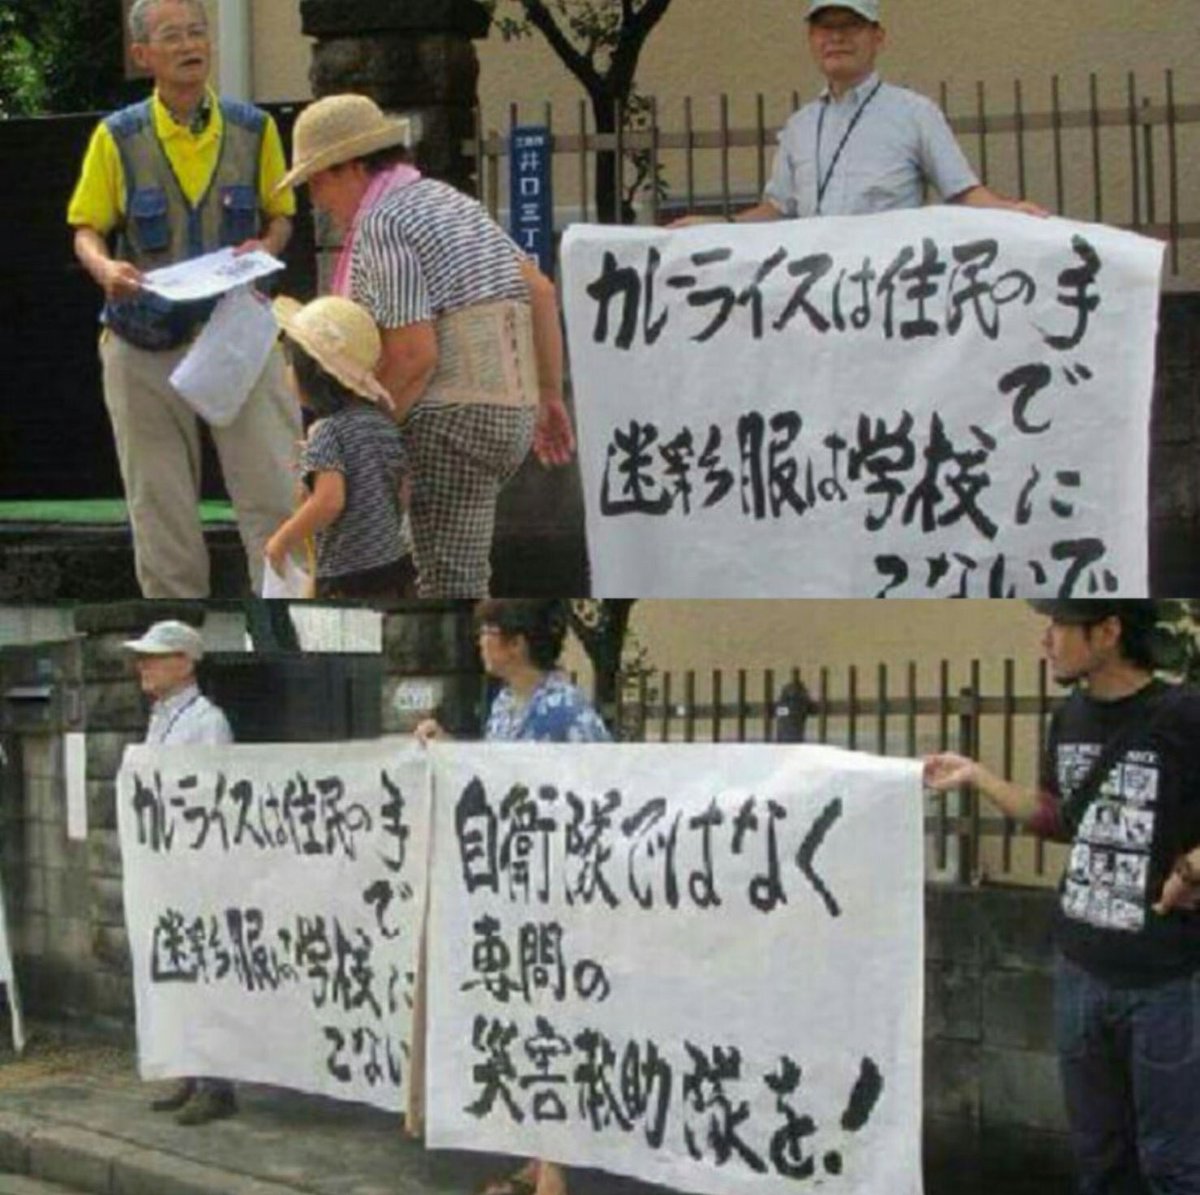 井口三丁
カレーライスは住民の手
で
迷彩服は学校に
こないで
カレーライスは住民の手
で
迷彩服は学校に
こない
自衛隊ではなく
専問の
災害救助隊を!